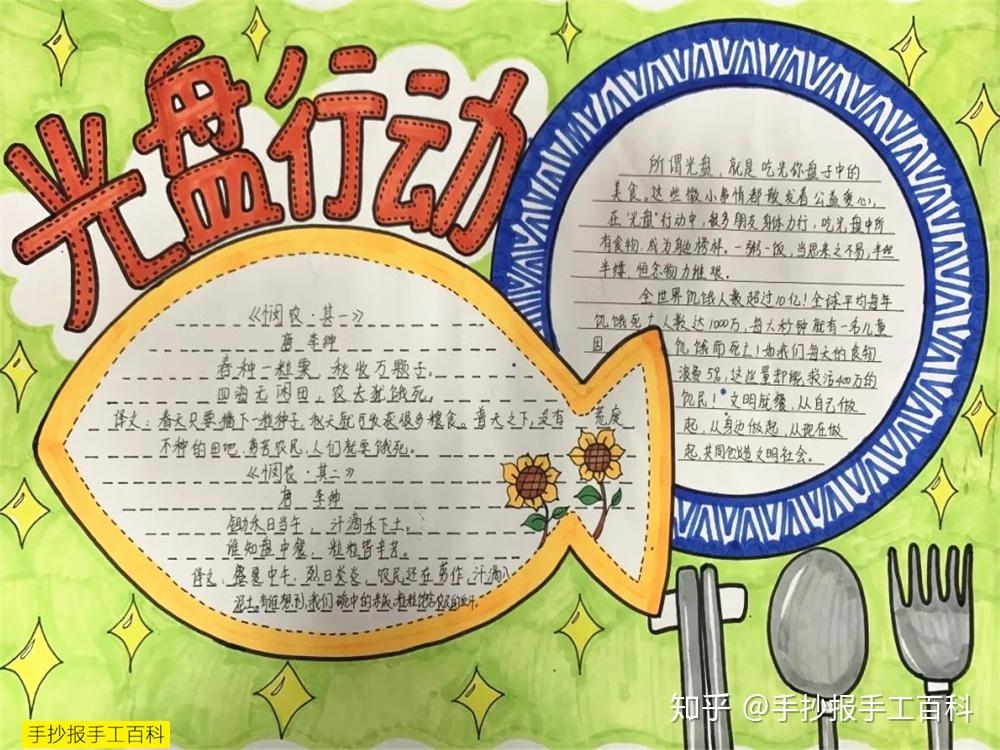 光盘行动
《悯农·其一》
唐 李绅
春种一粒粟，秋收万颗子。
四海无闲田，农夫犹饿死。
译文：春天只要播下一粒种子，秋天就可收获很多粮食。普天之下，没有荒废
不种的田地，劳苦农民，人们就要饿死。
《悯农·其二》
唐 李绅
锄禾日当午，汗滴禾下土。
谁知盘中餐，粒粒皆辛苦。
译文：盛夏中午，烈日炎炎，农民还在劳作，汗滴入
泥土。有谁想到，我们碗中的米饭，粒粒饱含农民的血汗。
所谓光盘，就是吃光你盘子中的
美食。这些微小事情都散发着公益爱心，
在“光盘”行动中，很多朋友身体力行，吃光盘中所
有食物，成为身边榜样。一粥一饭，当思来之不易，半丝
半缕，恒念物力维艰。
全世界饥饿人数超过10亿！全球平均每年
饥饿死亡人数达1000万，每六秒钟就有一名儿童
因饥饿而死亡！如我们每天的食物
浪费5%，这些量却能救活400万的
饥民！文明就餐，从自己做
起，从身边做起，从现在做
起，共同创造文明社会。
手抄报手工百科
知乎 @手抄报手工百科